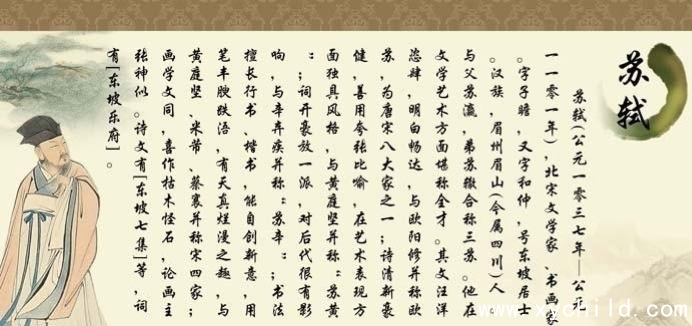 苏轼
苏轼(公元一零三七年—公元
一一零一年),北宋文学家、书画家
。字子瞻,又字和仲,号东坡居士
。汉族,眉州眉山(今属四川)人
与父苏,弟苏辙合称三苏。他在
文学艺术方面堪称全才。其文汪洋
恣肆,明白畅达,与欧阳修并称欧
苏,为唐宋八大家之一;诗清新豪
健,善用夸张比喻,在艺术表现方
面独具风格,与黄庭坚并称"苏黄
";词开豪放一派,对后代很有影
响,与辛弃疾并称"苏辛";书法
擅长行书、楷书,能自创新意,用
笔丰腴跌宕,有天真烂漫之趣,与
黄庭坚、米芾、蔡襄并称宋四家;
画学文同,喜作枯木怪石,论画主
张神似。诗文有[东坡七集]等,词
有[东坡乐府]。
www.xychild.com